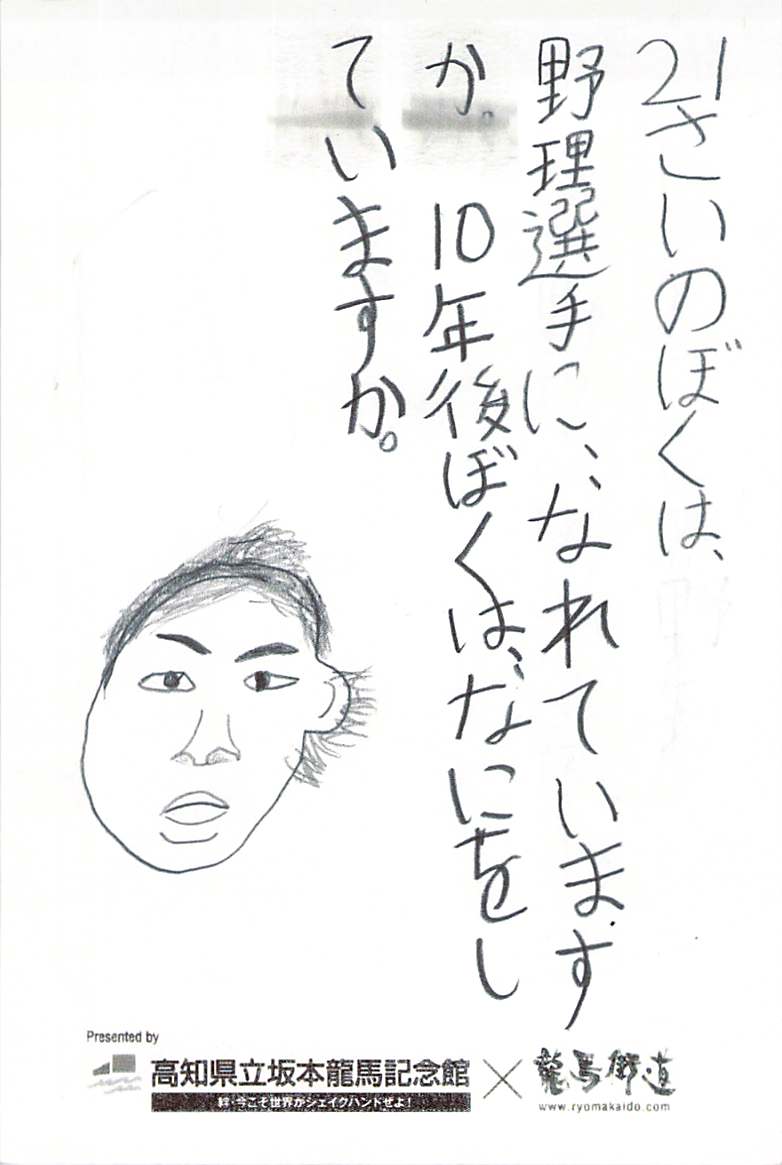 21さいのぼくは、
野理選手に、なれています
か。10年後ぼくは、なにをし
ていますか。
Presented by
高知県立坂本龍馬記念館×龍馬街道
絆・今こそ世界がシェイクハンドぜよ!
www.ryomakaido.com